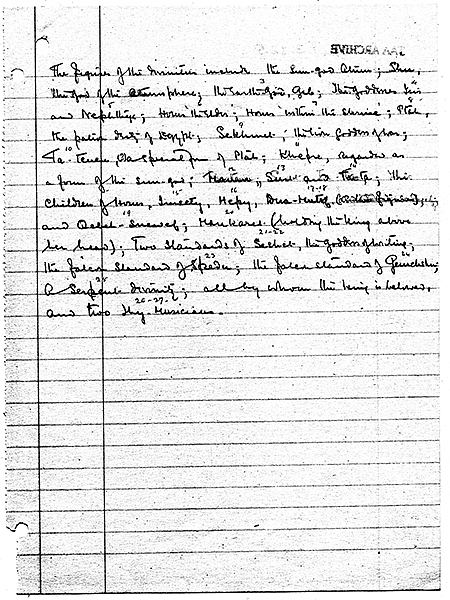 TAA ARCHIVE
The figures of the divinities include the Sun-god Atum; Shu,
the god of the atmosphere; the Earth God, Geb; the Goddesses Isis
and Nephthys; Horus 'the Elder'; Horus 'within the shrine'; Ptah,
the patron deity of Egypt; Sekhmet the lion Goddess of war,
Ta Tenen, a form of Ptah; Khepre, regarded as
a form of the sun-god; and the
Children of Horus, Imsety, Hapy, Dua-Mutef
and Qebeh-Snewef; Menkaret (holding the king above
her head); Two Standards of the goddess of writing;
the falcon standard of Spedu; the falcon standard of
A Serpent divinity; all by whom the king is beloved,
and two Ihy-Musicians.